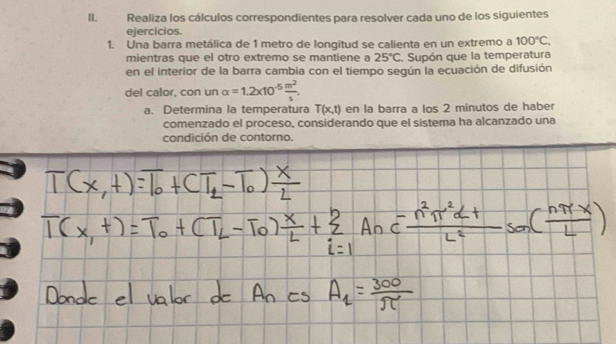 II. Realiza los cálculos correspondientes para resolver cada uno de los siguientes
ejercicios.
1. Una barra metálica de 1 metro de longitud se calienta en un extremo a 100°C,
mientras que el otro extremo se mantiene a 25°C. Supón que la temperatura
en el interior de la barra cambia con el tiempo según la ecuación de difusión
del calor, con un α = 1.2x10⁻⁵ m²/s.
a. Determina la temperatura T(x,t) en la barra a los 2 minutos de haber
comenzado el proceso, considerando que el sistema ha alcanzado una
condición de contorno.
T(x,t)=T₀+(T_L-T₀) x/L
T(x,t)=T₀+(T_L-T₀) x/L + Σ i=1 An e^-n²π²αt/L² sen(nπx/L)
Donde el valor de An es A₁ = 300/π